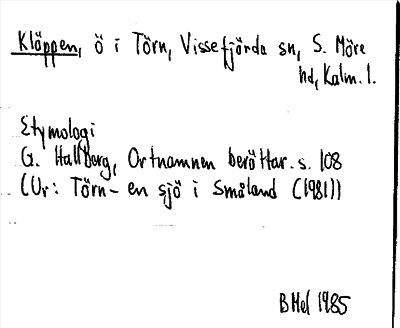 Kläppen, ö i Törn, Vissefjärda sn, S. Möre
hd, Kalm. l.
Etymologi
G. Hallberg, Ortnamnen berättar. s. 108
(Ur: Törn – en sjö i Småland (1981))
BHel 1985